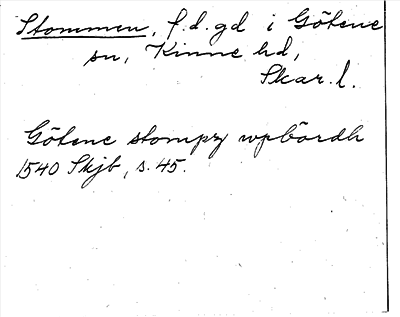 Stommen, f.d. gd i Götene
sn, Kinne hd,
Skar. l.
Götene stompz wpbördh
1540 Skjb, s. 45.